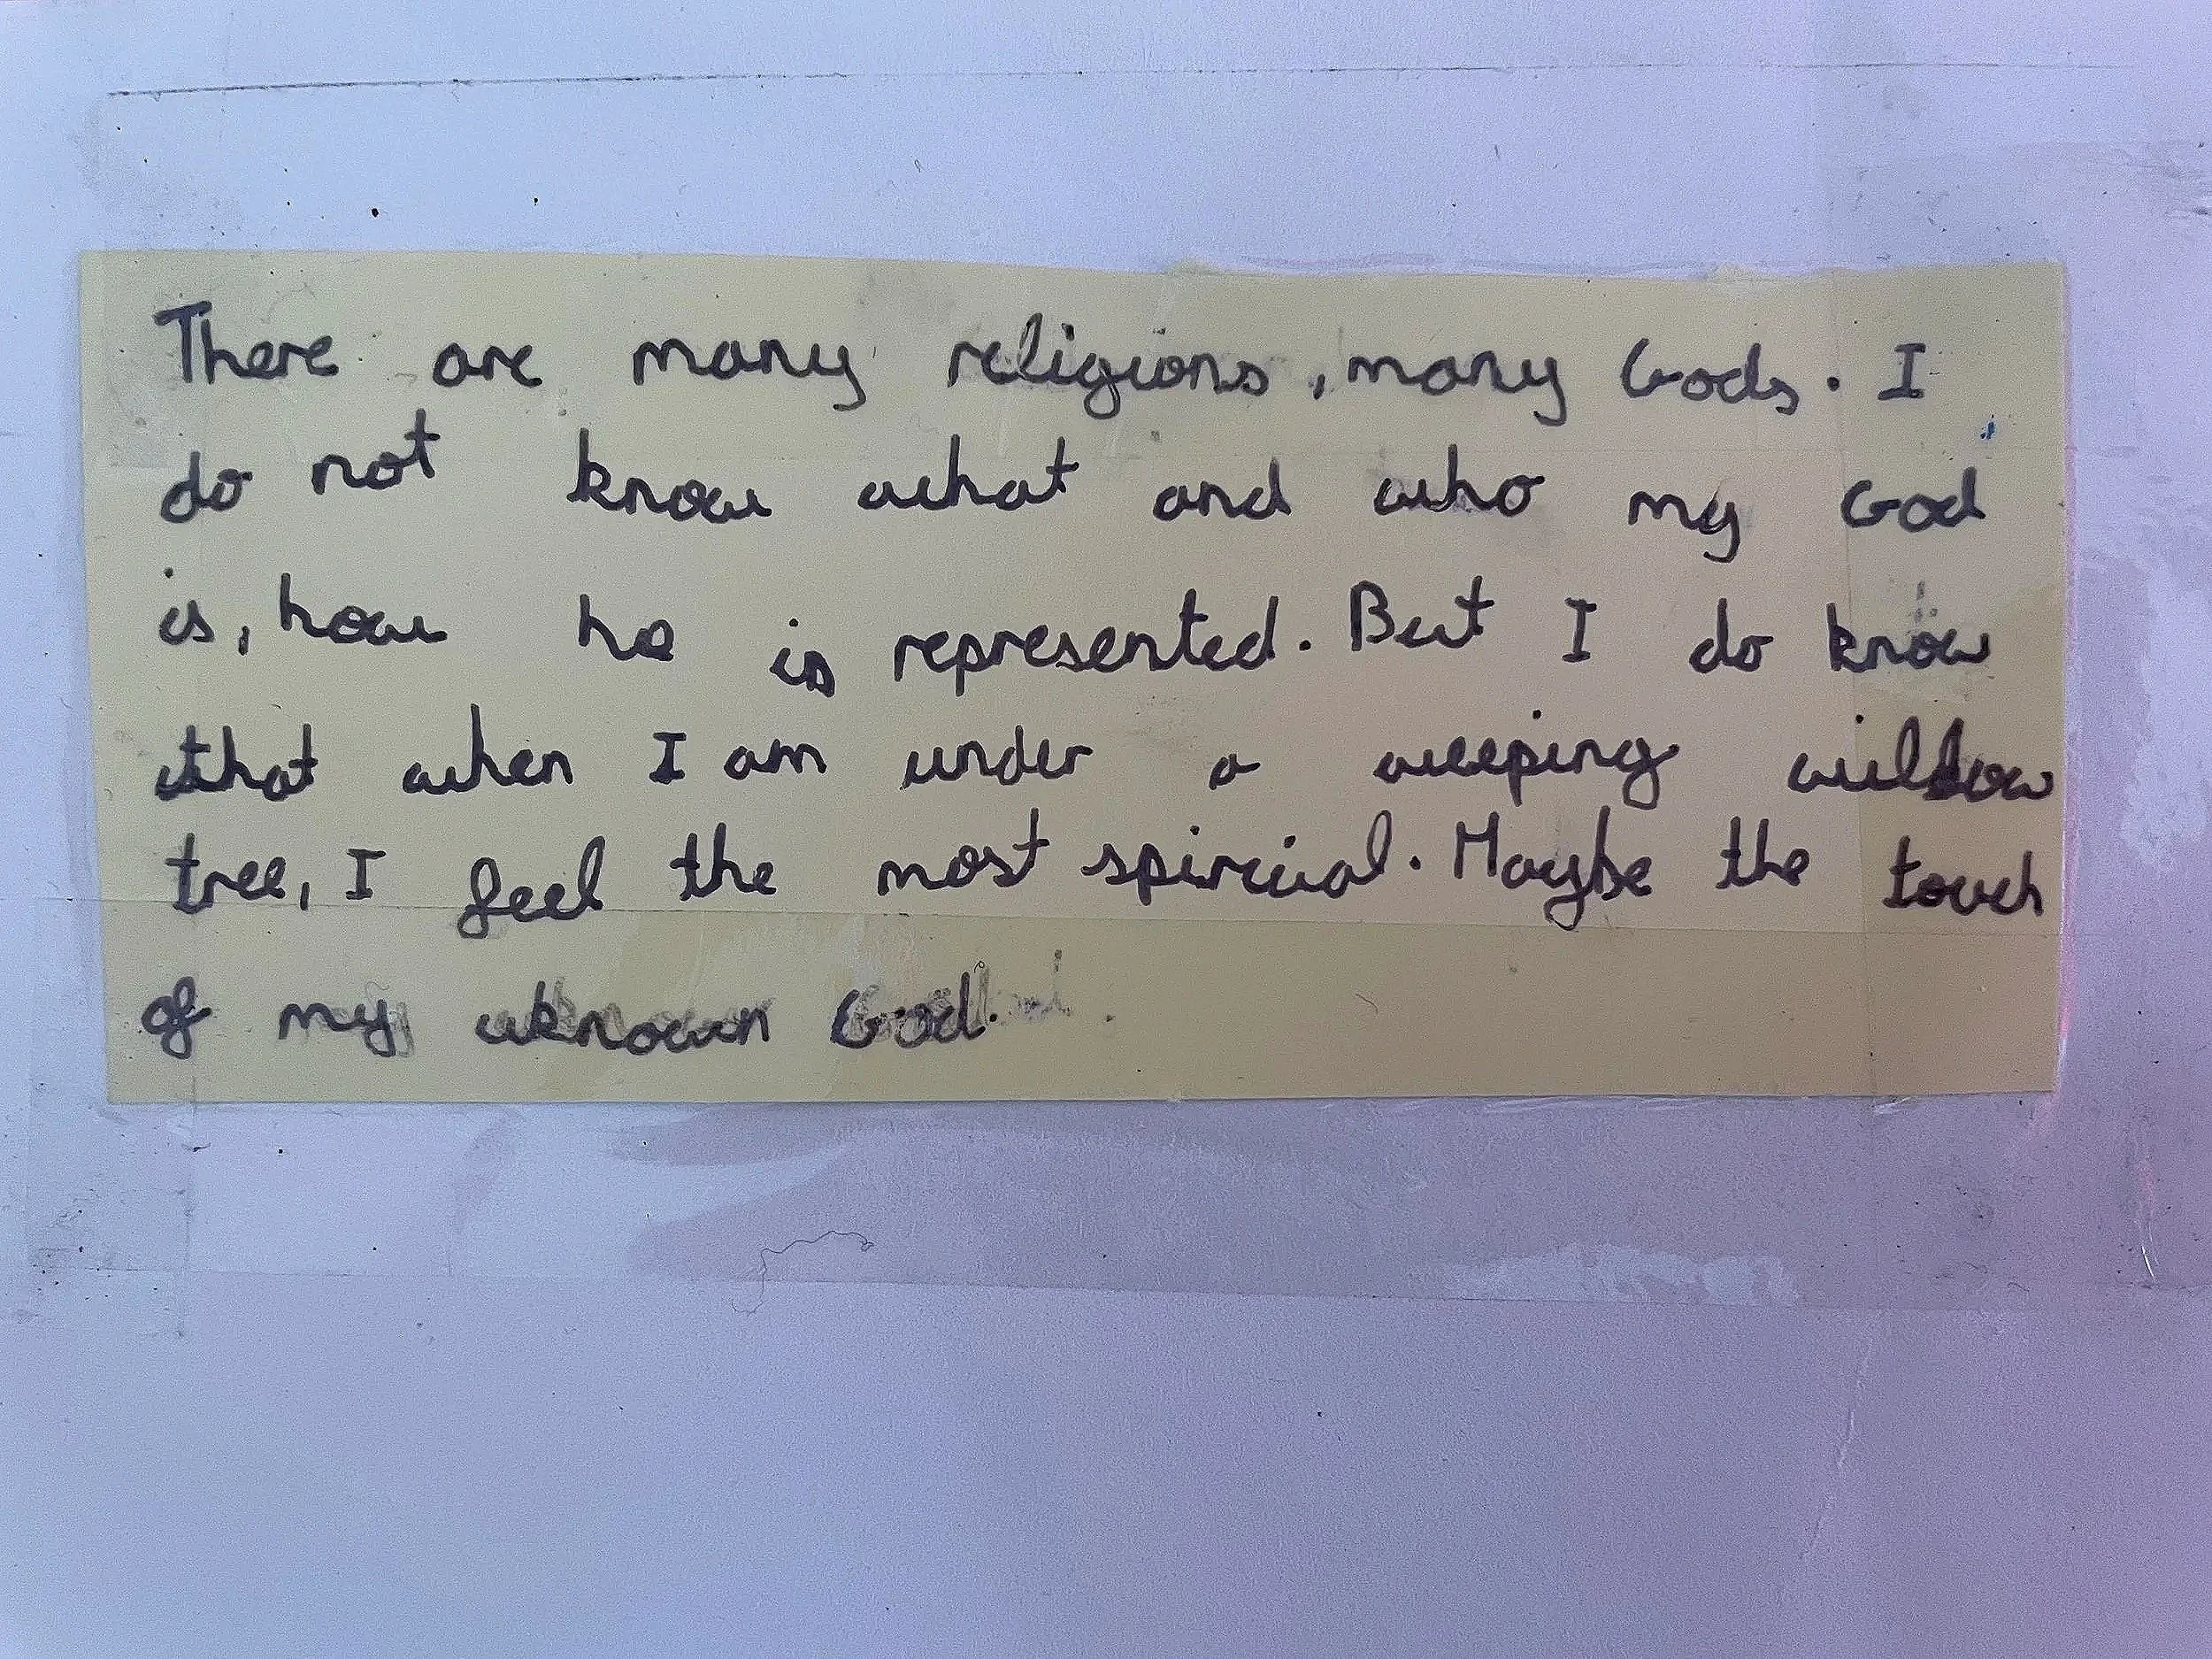 There are many religions, many Gods. I
do not know what and who my God
is, how he is represented. But I do know
that when I am under a weeping willow
tree, I feel the most spircial. Maybe the touch
of my uknown God.